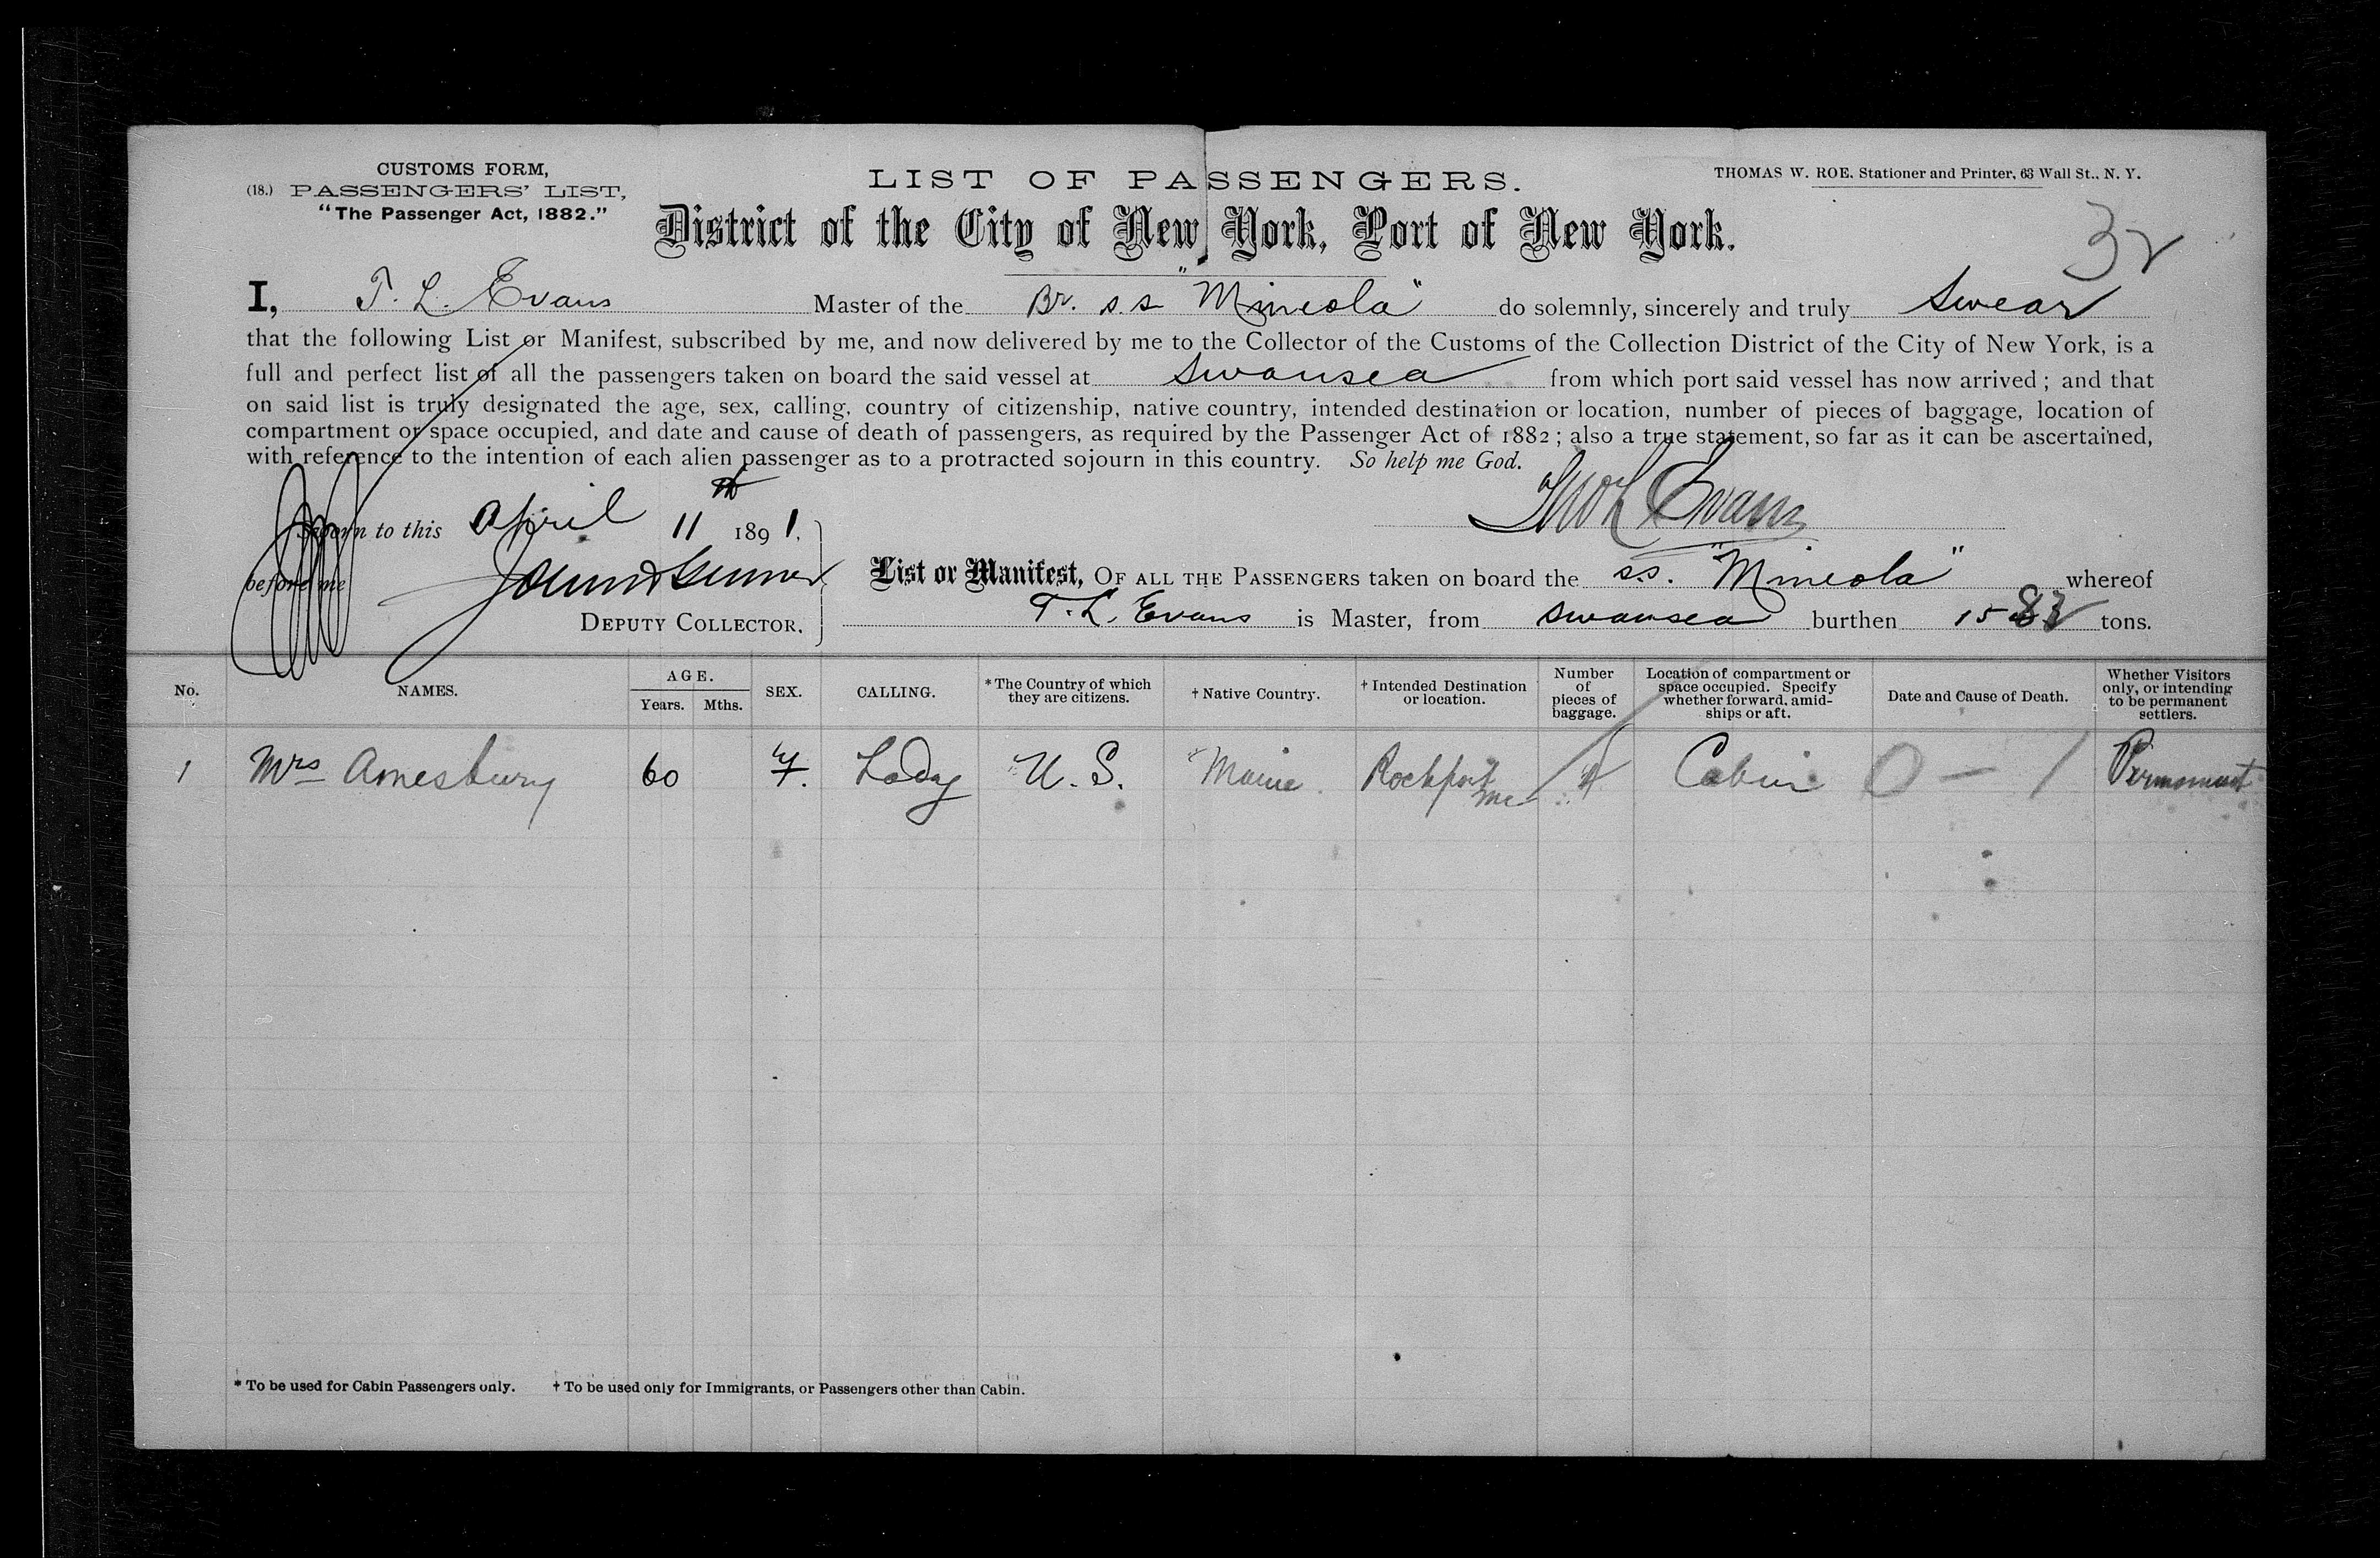 CUSTOMS FORM,
(18.) PASSENGERS' LIST,
"The Passenger Act, 1882."
LIST OF PASSENGERS.
THOMAS W. ROE, Stationer and Printer, 63 Wall St., N. Y.
District of the City of New York, Port of New York.
32
I, T. L. Evans Master of the Br. s.s "Mineola" do solemnly, sincerely and truly swear
that the following List or Manifest, subscribed by me, and now delivered by me to the Collector of the Customs of the Collection District of the City of New York, is a
full and perfect list of all the passengers taken on board the said vessel at Swansea from which port said vessel has now arrived; and that
on said list is truly designated the age, sex, calling, country of citizenship, native country, intended destination or location, number of pieces of baggage, location of
compartment or space occupied, and date and cause of death of passengers, as required by the Passenger Act of 1882; also a true statement, so far as it can be ascertained,
with reference to the intention of each alien passenger as to a protracted sojourn in this country. So help me God.
Thos L Evans
Sworn to this April 11th 1891.
before me
DEPUTY COLLECTOR.
List or Manifest, OF ALL THE PASSENGERS taken on board the s.s. "Mineola" whereof
T. L. Evans is Master, from Swansea burthen tons.
No.
NAMES.
AGE.
Years. Mths.
SEX.
CALLING.
* The Country of which
they are citizens.
† Native Country.
† Intended Destination
or location.
Number
of
pieces of
baggage.
Location of compartment or
space occupied. Specify
whether forward, amid-
ships or aft.
Date and Cause of Death.
Whether Visitors
only, or intending
to be permanent
settlers.
1 Mrs Amesbury 60 F. Lady U. S. Maine. Rockport Me Cabin 0 — / Permanent
* To be used for Cabin Passengers only. † To be used only for Immigrants, or Passengers other than Cabin.